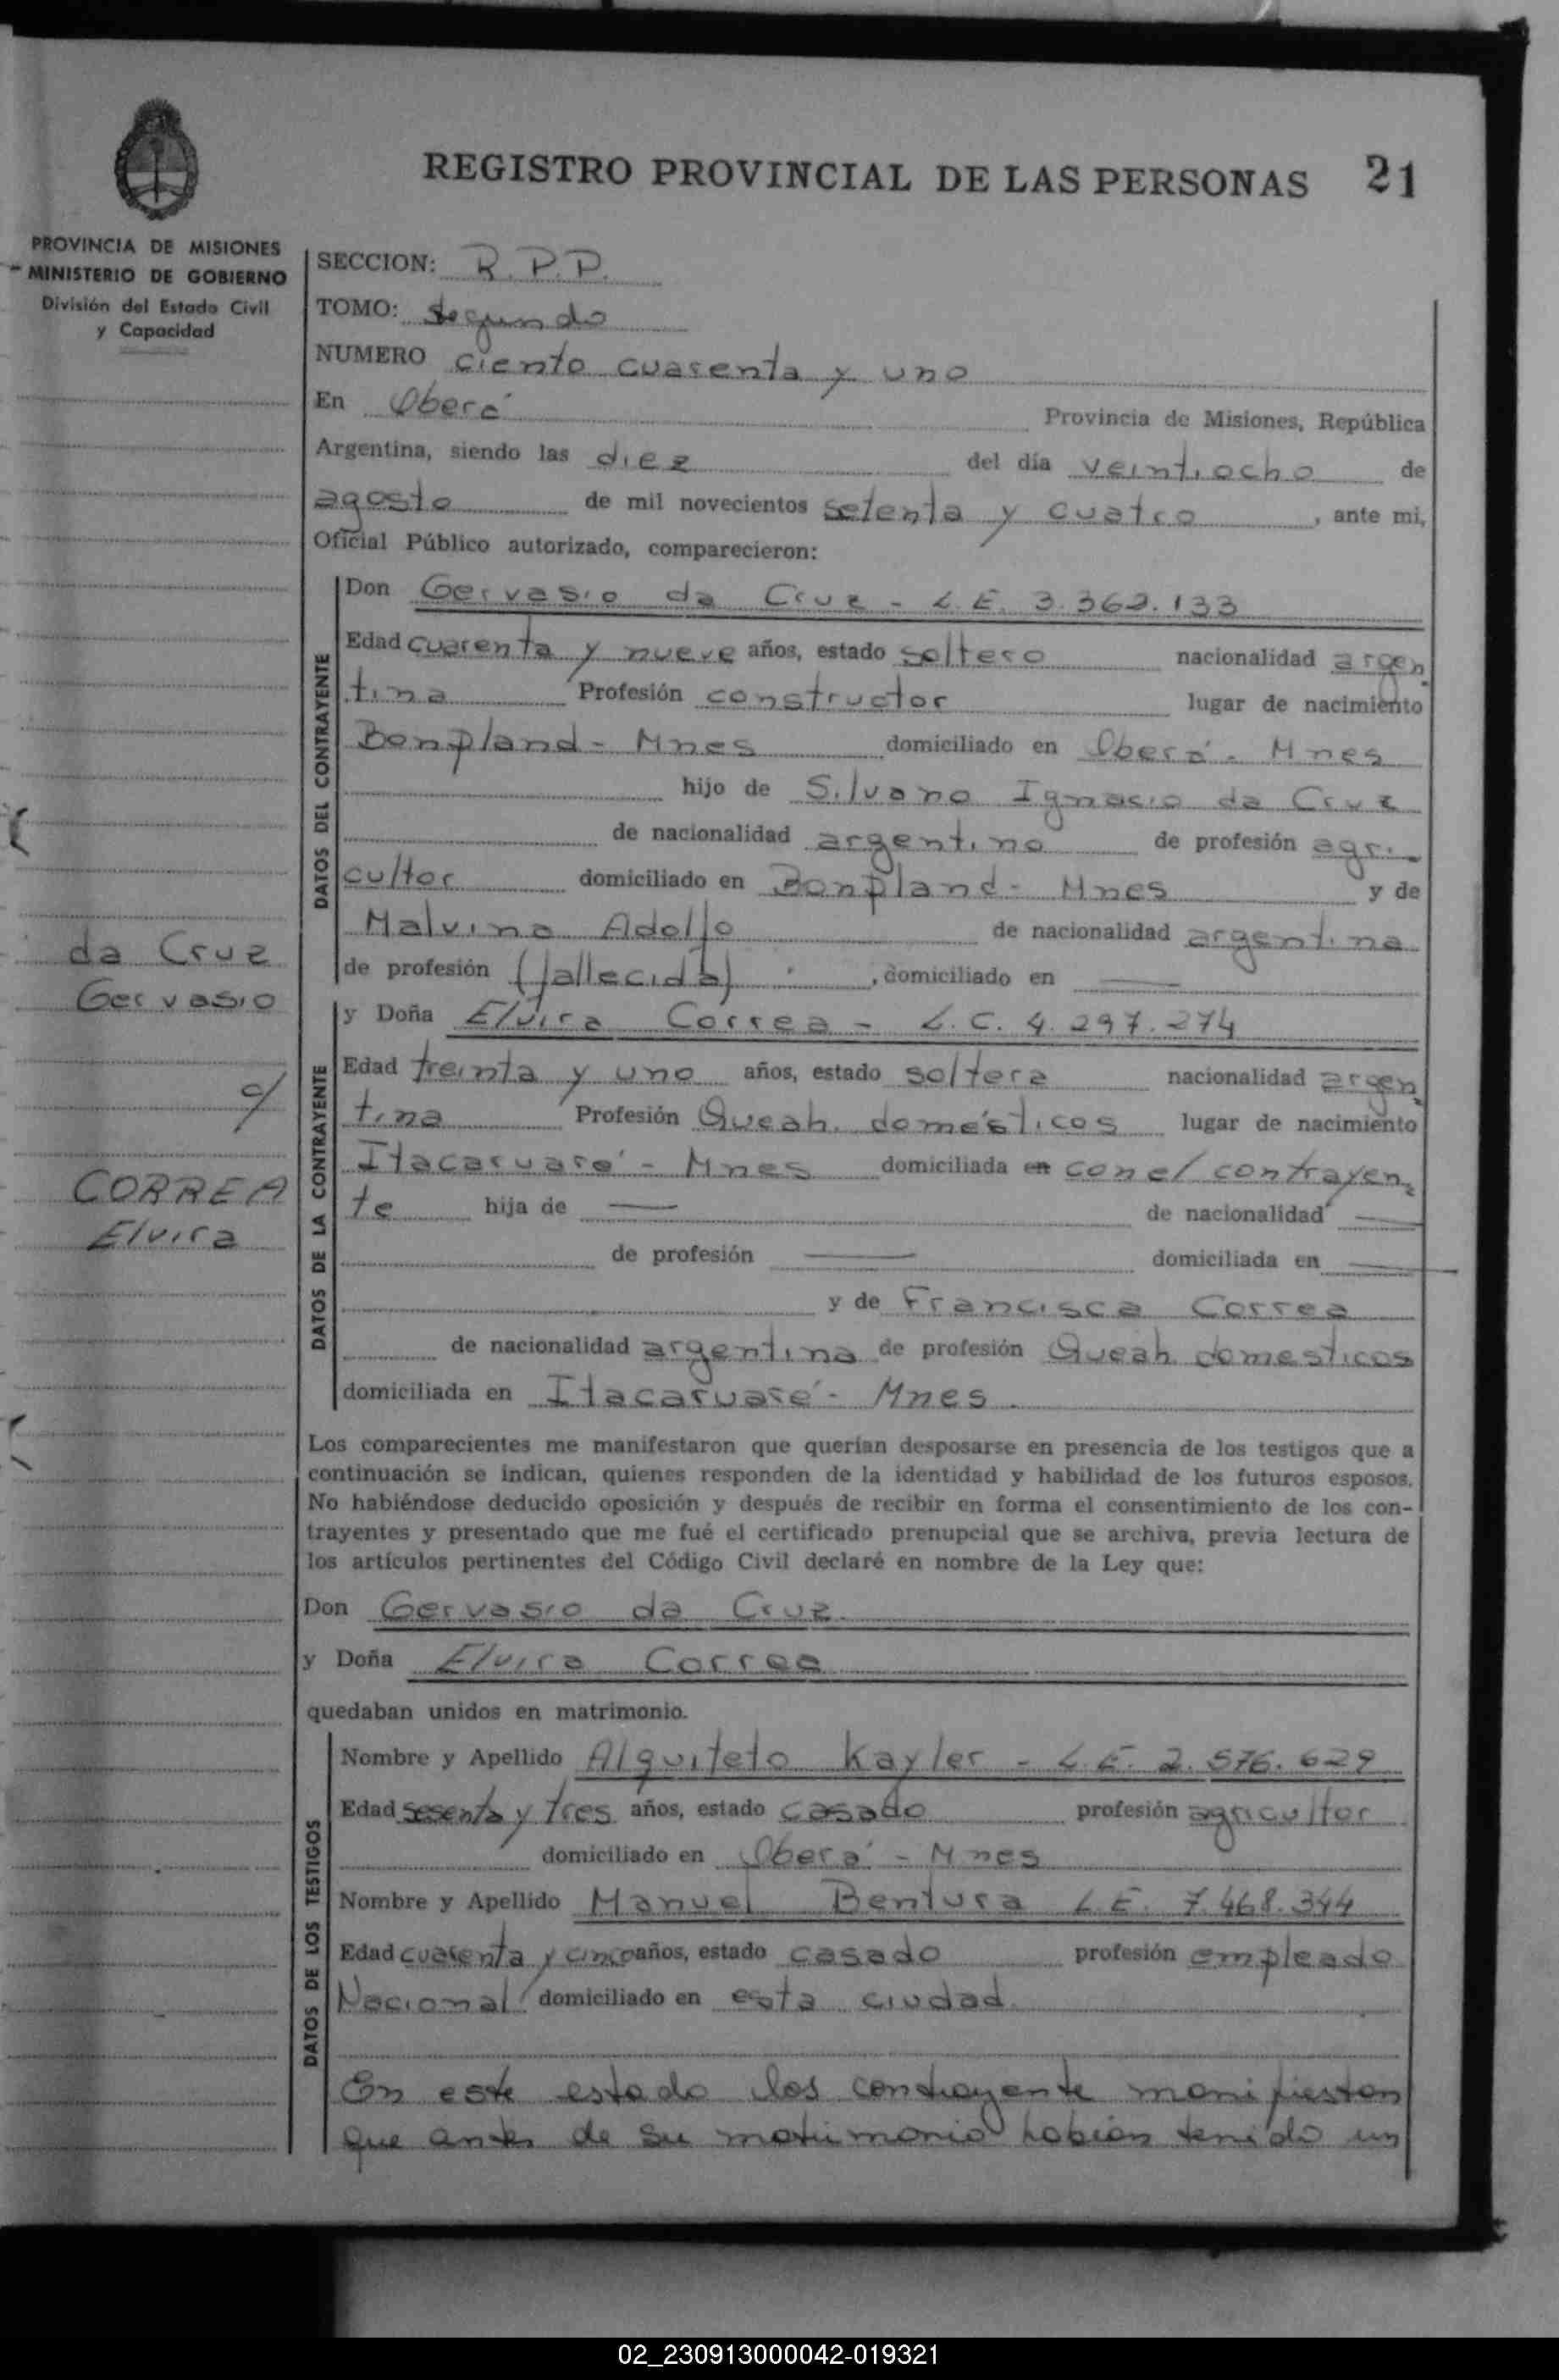 REGISTRO PROVINCIAL DE LAS PERSONAS 21
PROVINCIA DE MISIONES
MINISTERIO DE GOBIERNO
División del Estado Civil
y Capacidad
SECCION: R. P. P.
TOMO: Segundo
NUMERO ciento cuarenta y uno
En Oberá Provincia de Misiones, República
Argentina, siendo las diez del día veintiocho de
agosto de mil novecientos setenta y cuatro, ante mi,
Oficial Público autorizado, comparecieron:
DATOS DEL CONTRAYENTE
Don Gervasio da Cruz - L.E. 3.362.133
Edad cuarenta y nueve años, estado soltero nacionalidad argen
tina Profesión constructor lugar de nacimiento
Bonpland - Mnes domiciliado en Oberá - Mnes
hijo de Silvano Ignacio da Cruz
de nacionalidad argentino de profesión agri-
cultor domiciliado en Bonpland - Mnes y de
Malvina Adolfo de nacionalidad argentina
de profesión (fallecida), domiciliado en —
da Cruz
Gervasio
c/
CORREA
Elvira
DATOS DE LA CONTRAYENTE
y Doña Elvira Correa - L.C. 4.297.274
Edad treinta y uno años, estado soltera nacionalidad argen
tina Profesión Queah. domésticos lugar de nacimiento
Itacaruaré - Mnes domiciliada en con el contrayen
te hija de — de nacionalidad —
de profesión — domiciliada en —
y de Francisca Correa
de nacionalidad argentina de profesión Queah domesticos
domiciliada en Itacaruaré - Mnes.
Los comparecientes me manifestaron que querían desposarse en presencia de los testigos que a
continuación se indican, quienes responden de la identidad y habilidad de los futuros esposos.
No habiéndose deducido oposición y después de recibir en forma el consentimiento de los con-
trayentes y presentado que me fué el certificado prenupcial que se archiva, previa lectura de
los artículos pertinentes del Código Civil declaré en nombre de la Ley que:
Don Gervasio da Cruz
y Doña Elvira Correa
quedaban unidos en matrimonio.
DATOS DE LOS TESTIGOS
Nombre y Apellido Alquiteto Kayler - L.E. 2.576.629
Edad sesenta y tres años, estado casado profesión agricultor
domiciliado en Oberá - Mnes
Nombre y Apellido Manuel Bentura L.E. 7.468.344
Edad cuarenta y cinco años, estado casado profesión empleado
Nacional domiciliado en esta ciudad.
En este estado los contrayente manifiestan
que antes de su matrimonio habían tenido un
02_230913000042-019321